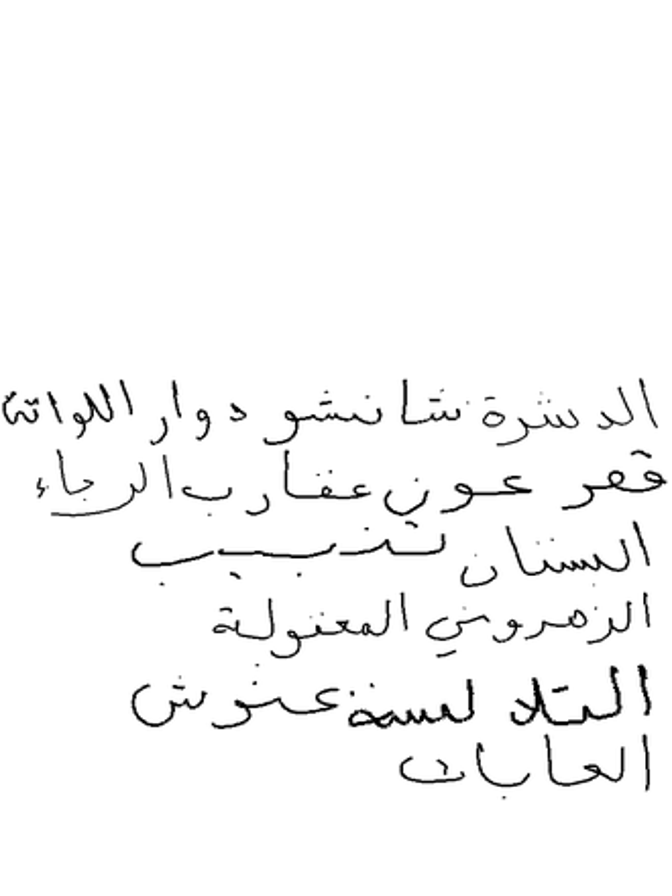 الدشرة شانشو دوار اللواتة
قصر عون عقارب الرجاء
البستان تذبيب
الزهروني المعزولة
التلالسة عنوش
الغابات